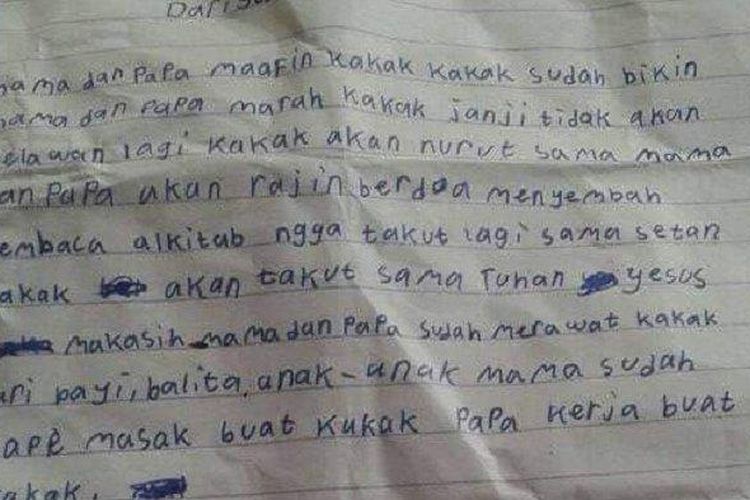 Dari
mama dan Papa maafin kakak kakak sudah bikin
mama dan papa marah kakak janji tidak akan
elawan lagi kakak akan nurut sama mama
an PaPa akan rajin berdoa menyembah
embaca alkitab ngga takut lagi sama setan
akak akan takut sama Tuhan yesus
makasih mama dan PaPa sudah merawat kakak
ari bayi, balita, anak-anak mama sudah
apè masak buat kakak PaPa kerja buat
akak.